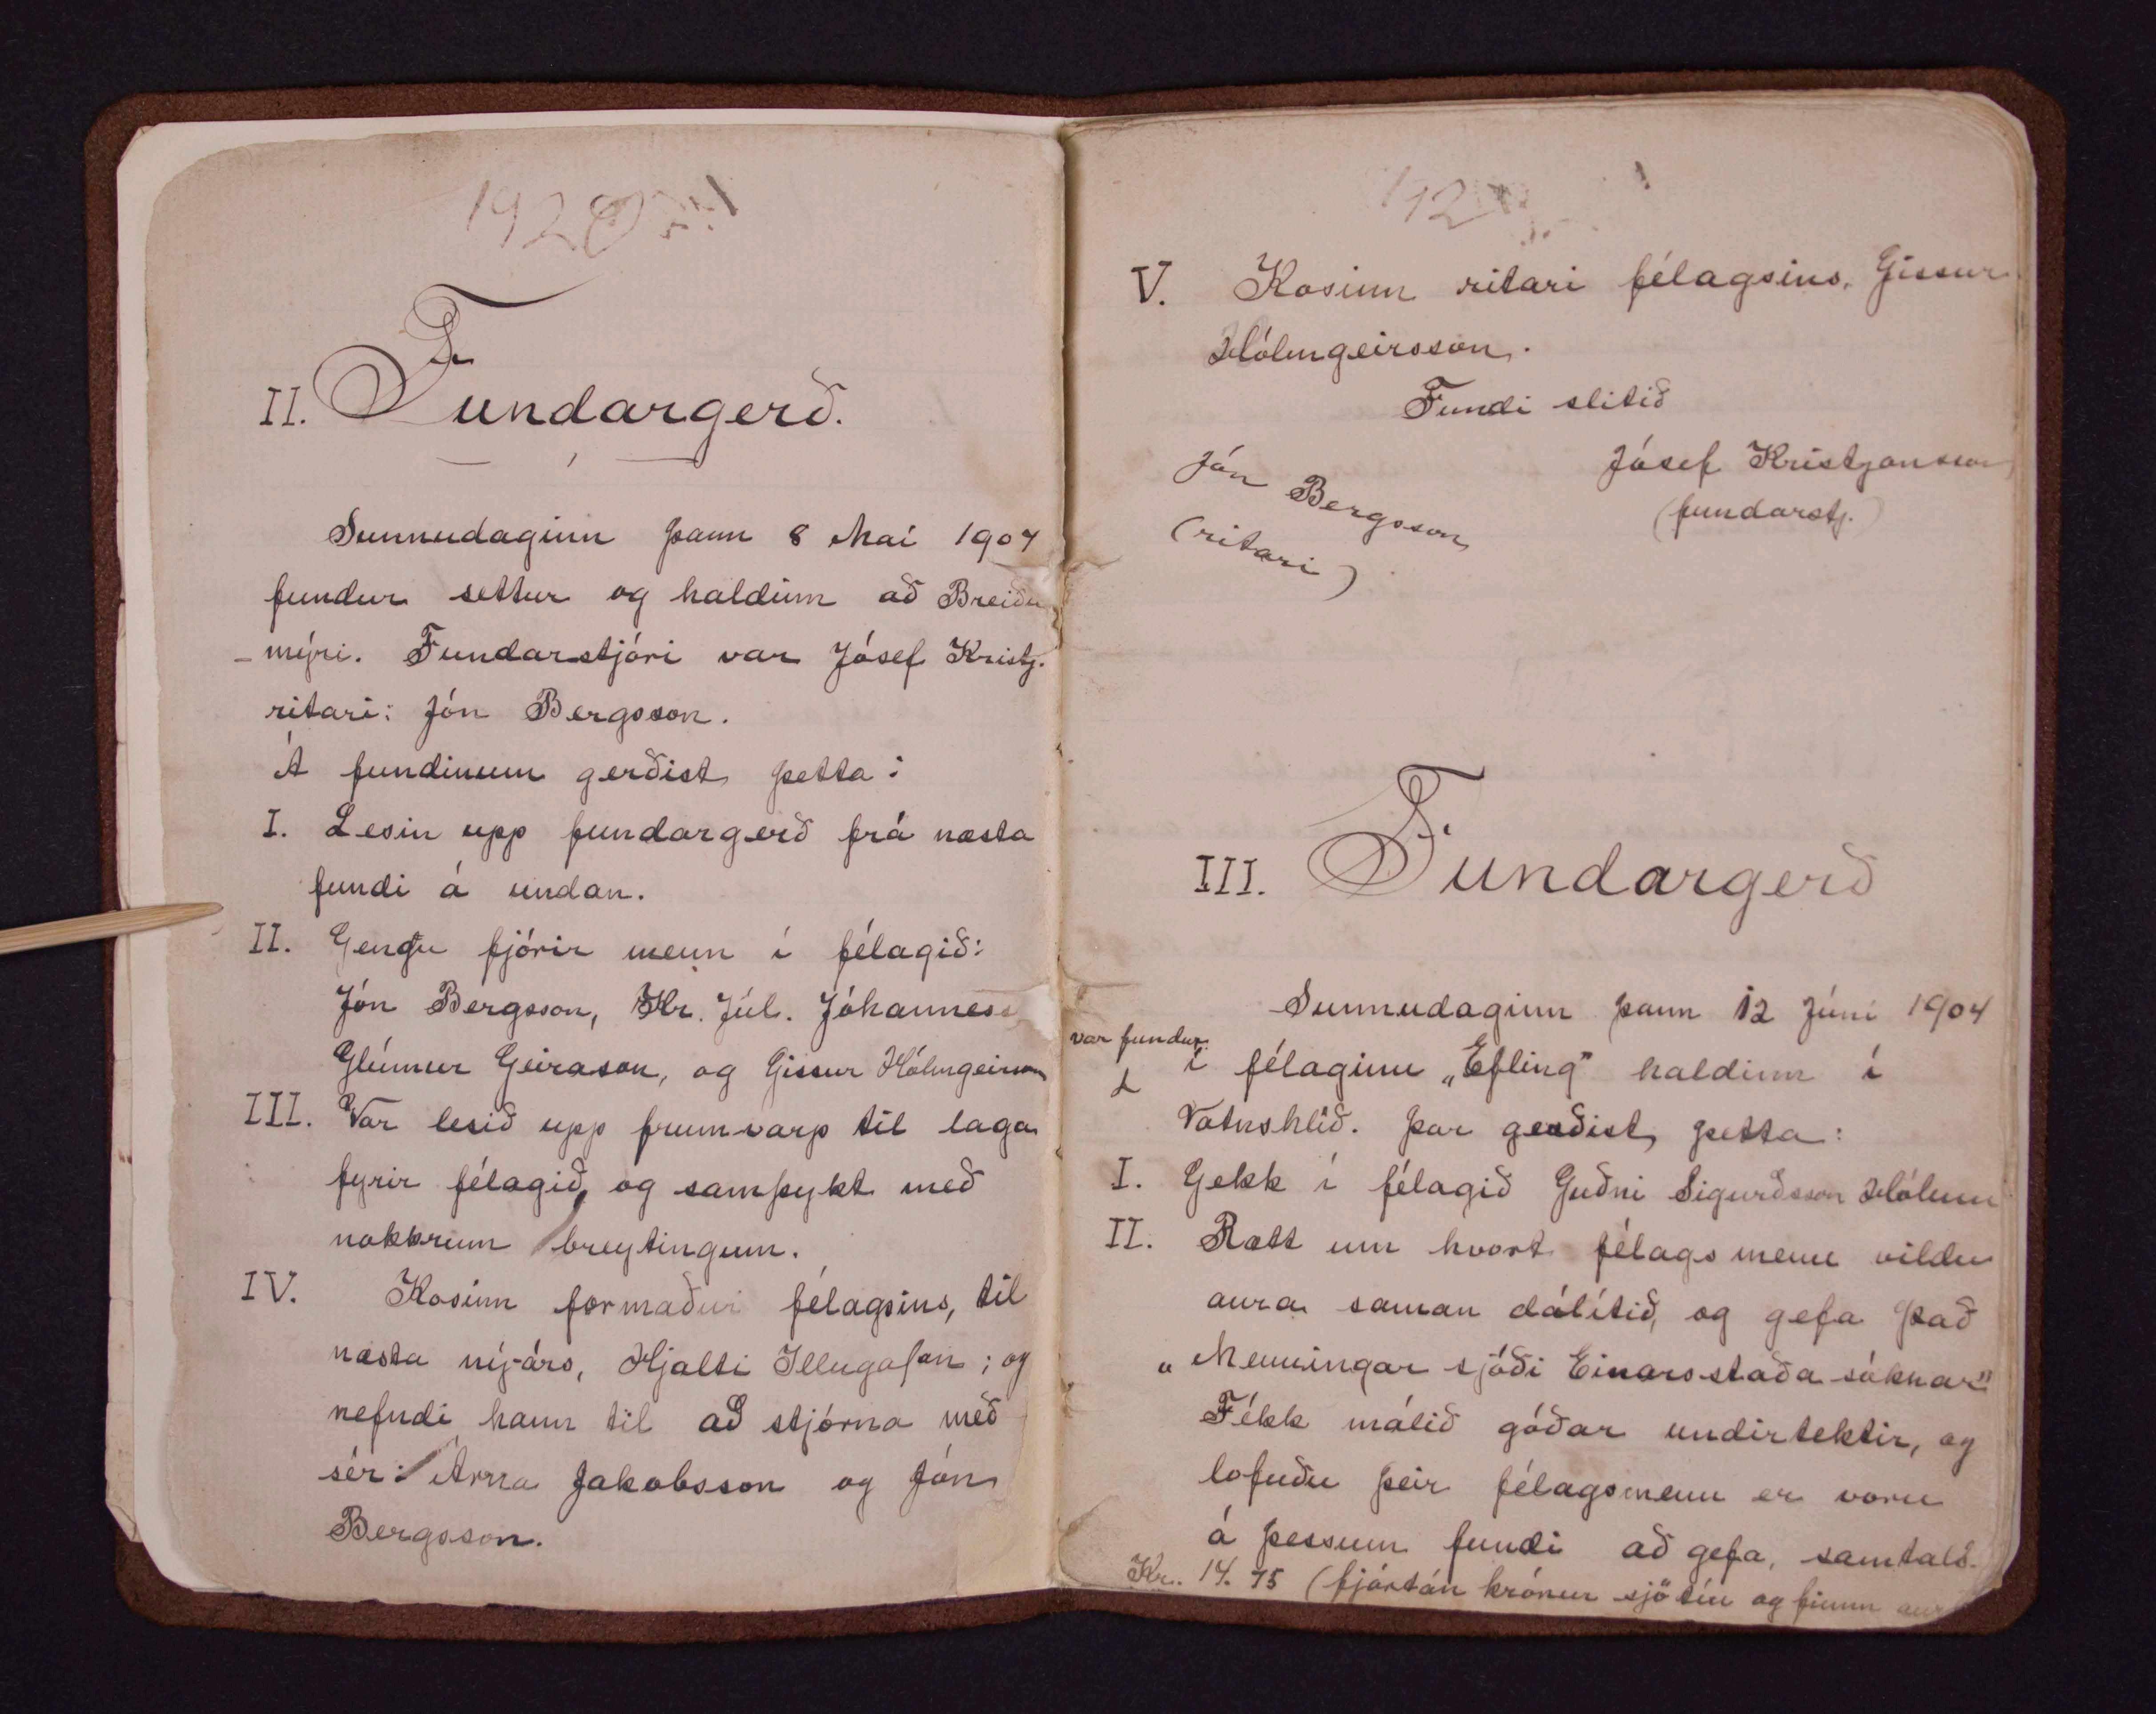 1920
II. Fundargerð.
Sunnudaginn þann 8 Maí 1904
fundur settur og haldinn að Breiðu
-mýri. Fundarstjóri var Jósef Kristj.
ritari: Jón Bergsson.
Á fundinum gerðist þetta:
I. Lesin upp fundargerð frá næsta
fundi á undan.
II. Gengu fjórir menn í félagið:
Jón Bergsson, Kr. Júl. Jóhanness
Glúmur Geirason, og Gissur Hólmgeirsson
III. Var lesið upp frumvarp til laga
fyrir félagið, og samþykt með
nokkrum breytingum.
IV. Kosinn formaður félagsins, til
næsta nýjárs, Hjalti Illugason; og
nefndi hann til að stjórna með
sér: Árna Jakobsson og Jón
Bergsson.
192
V. Kosinn ritari félagsins, Gissur
Hólmgeirsson.
Fundi slitið
Jósef Kristjánsson
(fundarstj.)
Jón Bergsson
(ritari)
III. Fundargerð
Sunnudaginn þann 12 Júní 1904
var fundur
í félaginu „Efling" haldinn í
Vatnshlíð. Þar gerðist þetta:
I. Gekk í félagið Guðni Sigurðsson Hólum
II. Rætt um hvort félagsmenn vildu
aura saman dálítið, og gefa það
„Menningar sjóði Einarsstaða sóknar"
Fékk málið góðar undirtektir, og
lofuðu þeir félagsmenn er voru
á þessum fundi að gefa, samtals.
Kr. 14.75 (fjórtán krónur sjötíu og fimm aur